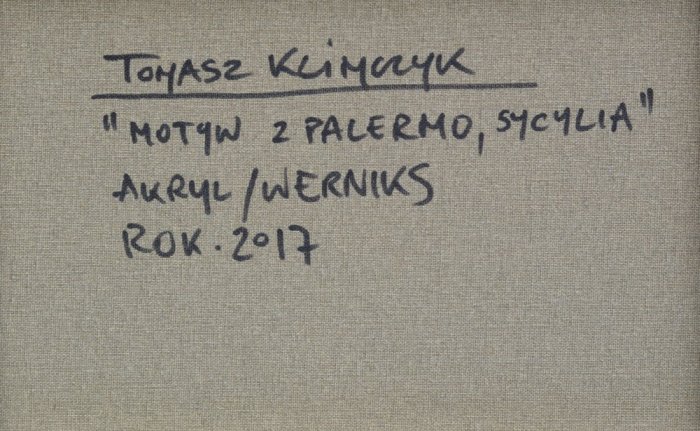 TOMASZ KLIMCZYK
"MOTYW Z PALERMO, SYCYLIA"
AKRYL/WERNIKS
ROK. 2017